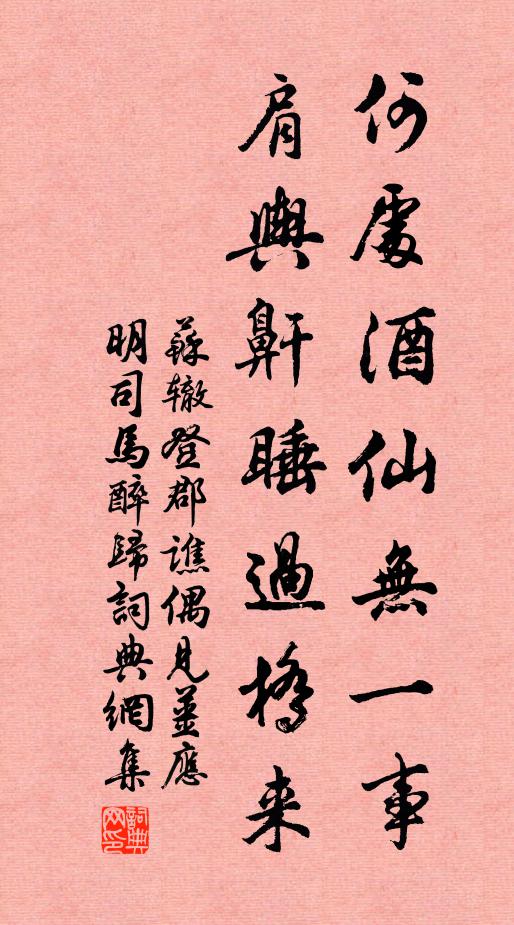 何處酒仙無一事
肩輿鼾睡過橋来
蘇辙登郡譙偶見薑應
明司馬醉歸詞典網集
詞典网印